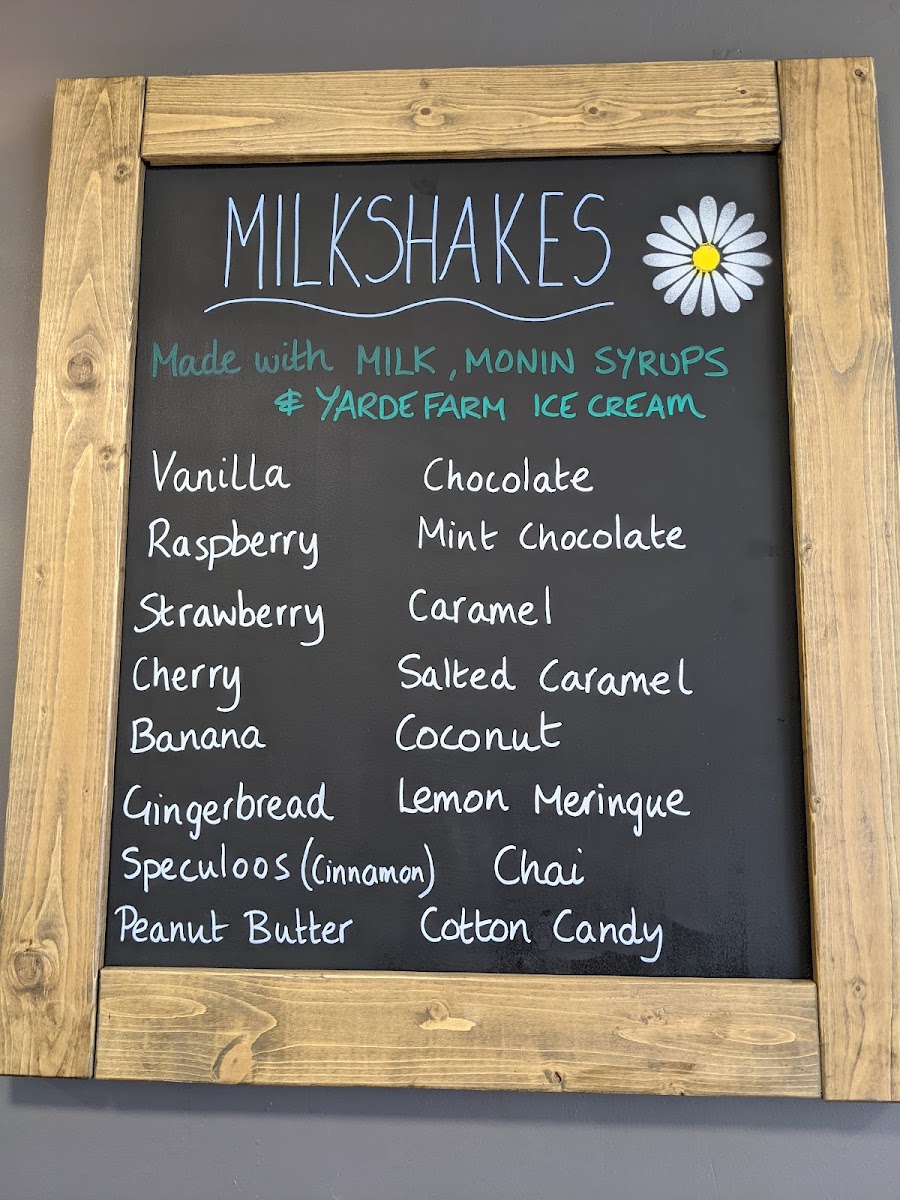 MILKSHAKES
Made with MILK, MONIN SYRUPS
& YARDE FARM ICE CREAM
Vanilla Chocolate
Raspberry Mint Chocolate
Strawberry Caramel
Cherry Salted Caramel
Banana Coconut
Gingerbread Lemon Meringue
Speculoos (Cinnamon) Chai
Peanut Butter Cotton Candy